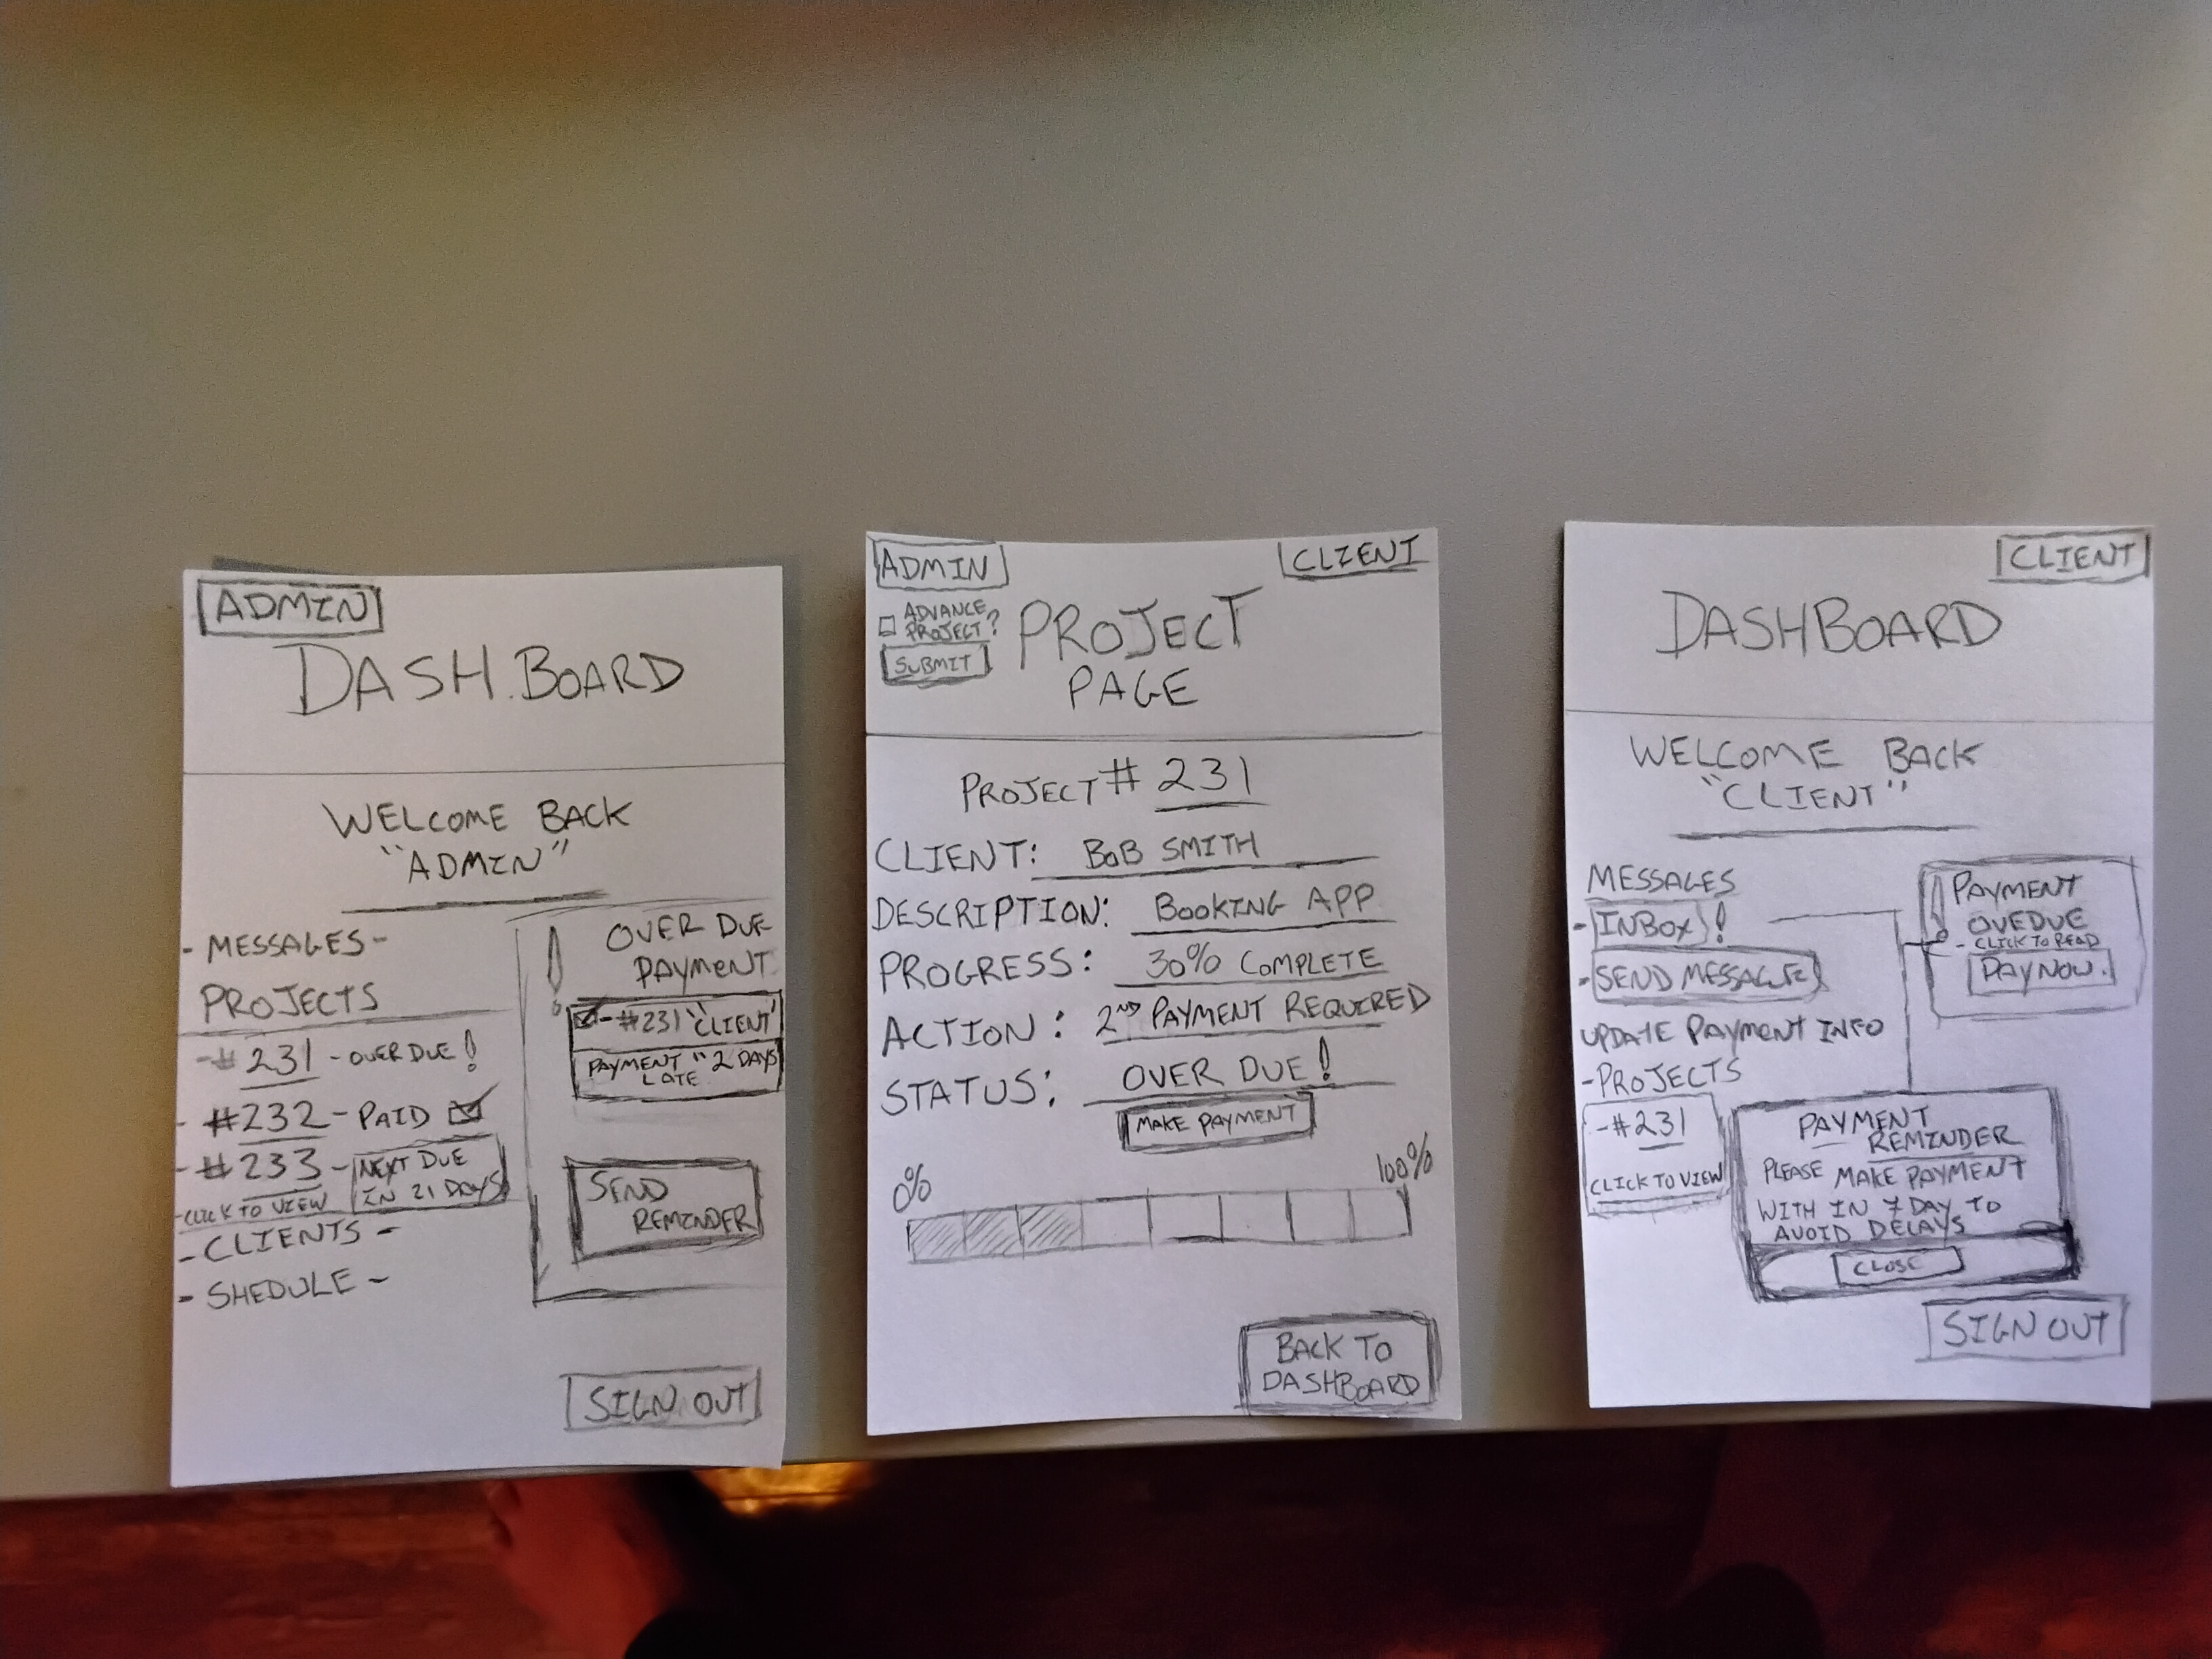 ADMIN
DASH.BOARD
WELCOME BACK
"ADMIN"
- MESSAGES -
PROJECTS
-# 231 - OVER DUE!
- #232 - PAID
- #233 - NEXT DUE
IN 21 DAYS
- CLICK TO VIEW
- CLIENTS -
- SHEDULE -
! OVER DUE
PAYMENT
- #231 "CLIENT"
PAYMENT " 2 DAYS
LATE
SEND
REMINDER
SIGN OUT
ADMIN
CLIENT
ADVANCE
PROJECT?
SUBMIT
PROJECT
PAGE
PROJECT # 231
CLIENT: BOB SMITH
DESCRIPTION: BOOKING APP
PROGRESS: 30% COMPLETE
ACTION: 2ND PAYMENT REQUIRED
STATUS: OVER DUE!
MAKE PAYMENT
0% 100%
BACK TO
DASHBOARD
CLIENT
DASHBOARD
WELCOME BACK
"CLIENT"
MESSAGES
- INBOX !
- SEND MESSAGE
UPDATE PAYMENT INFO
- PROJECTS
- #231
CLICK TO VIEW
! PAYMENT
OVEDUE
- CLICK TO READ
PAY NOW.
PAYMENT
REMINDER
PLEASE MAKE PAYMENT
WITH IN 7 DAY TO
AVOID DELAYS
CLOSE
SIGN OUT